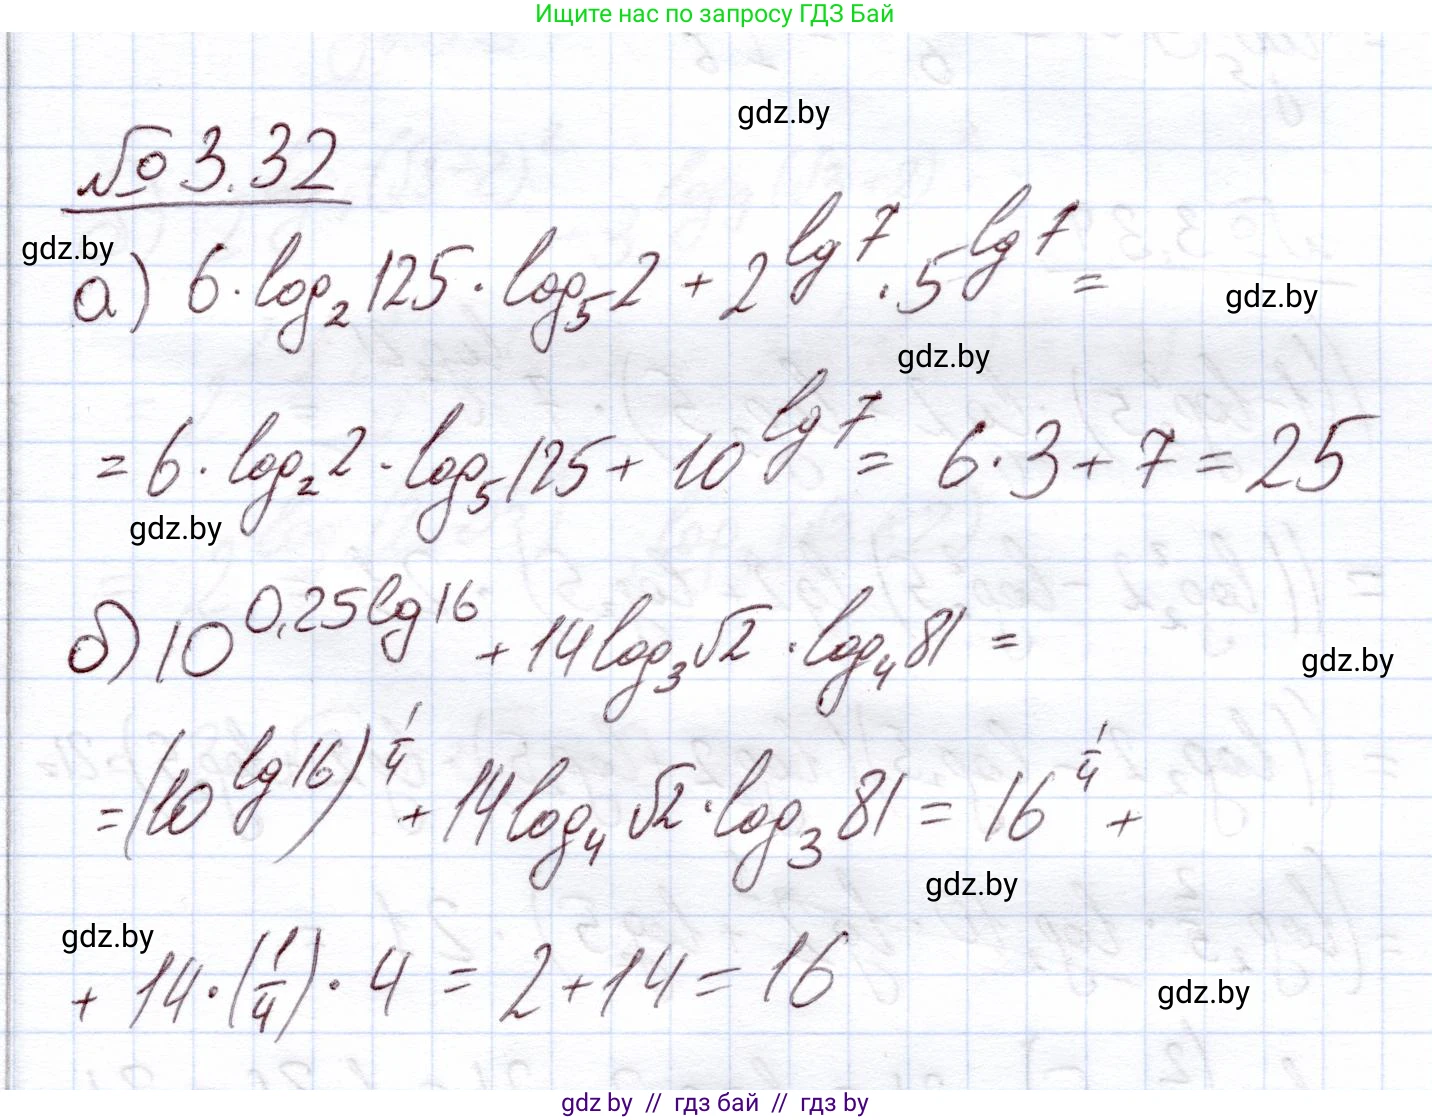 Ищите нас по запросу ГДЗ Бай
gdz.by
№ 3.32
gdz.by
а) 6 · log₂ 125 · log₅ 2 + 2^(lg 7) · 5^(lg 7) =
gdz.by
gdz.by
= 6 · log₂ 2 · log₅ 125 + 10^(lg 7) = 6 · 3 + 7 = 25
gdz.by
б) 10^(0,25 lg 16) + 14 log₃ √2 · log₄ 81 =
gdz.by
= (10^(lg 16))^(1/4) + 14 log₄ √2 · log₃ 81 = 16^(1/4) +
gdz.by
gdz.by
+ 14 · (1/4) · 4 = 2 + 14 = 16
gdz.by
gdz.by // гдз бай // гдз by